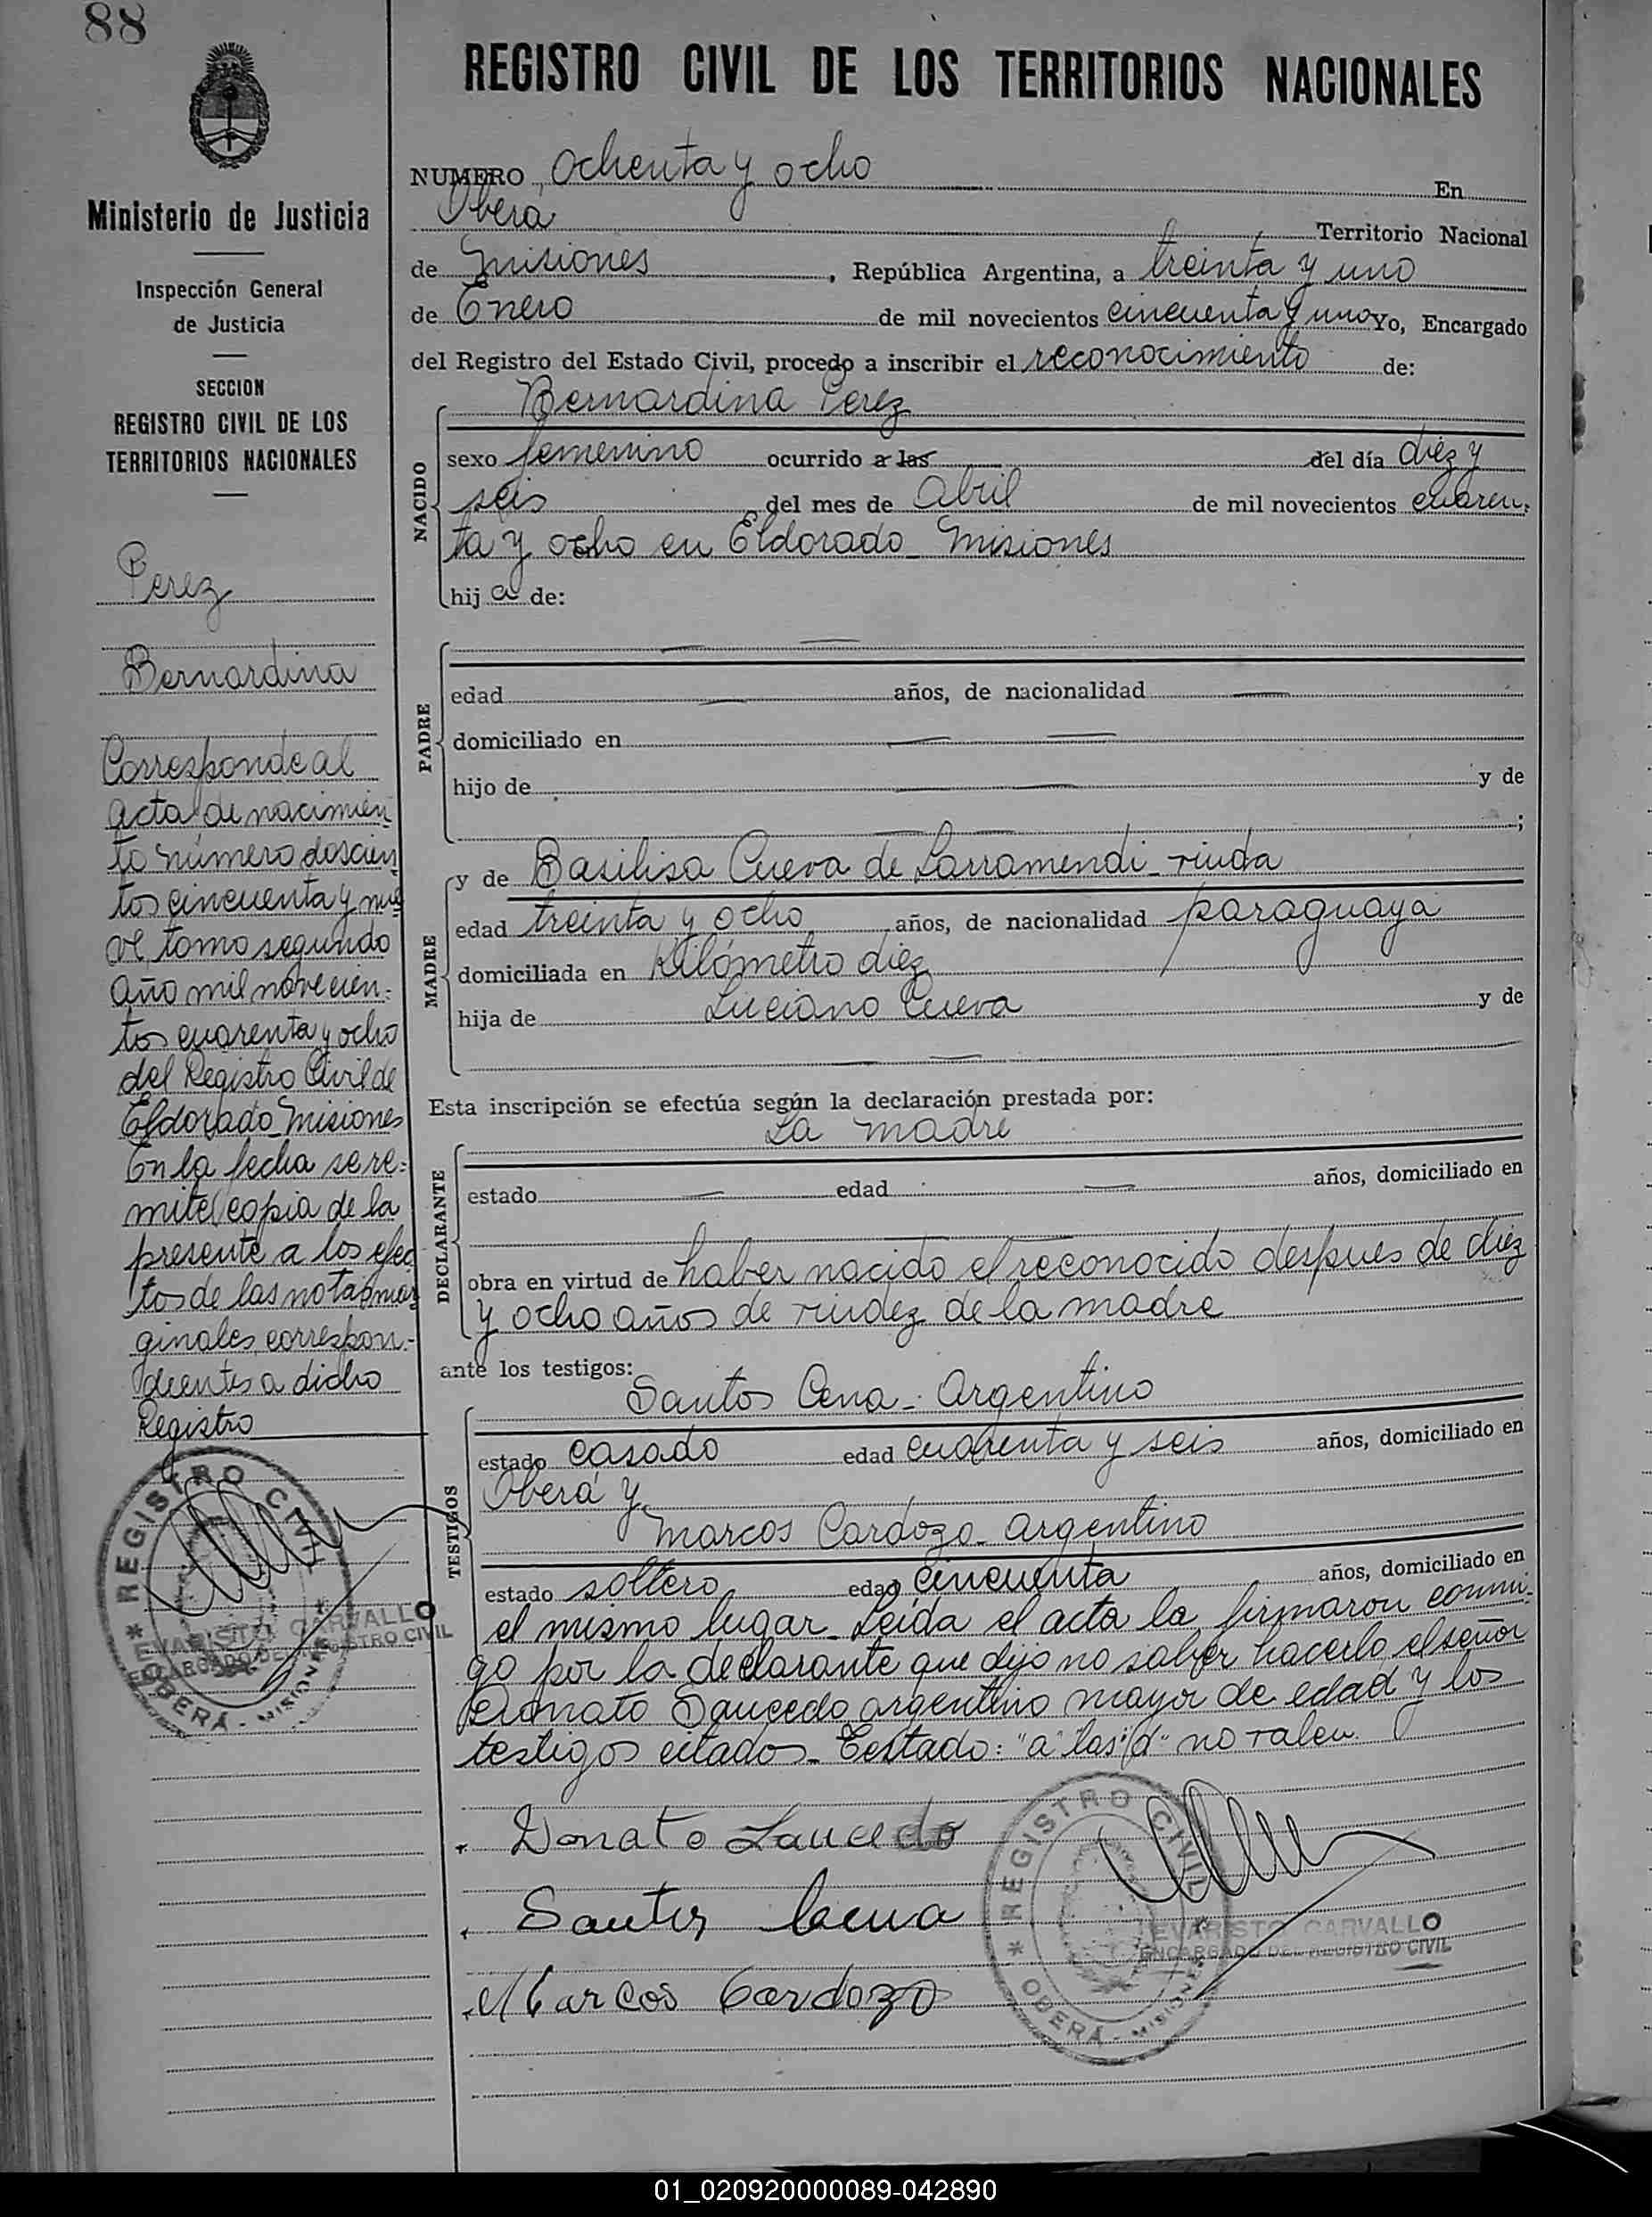 88
REGISTRO CIVIL DE LOS TERRITORIOS NACIONALES
Ministerio de Justicia
Inspección General
de Justicia
SECCION
REGISTRO CIVIL DE LOS
TERRITORIOS NACIONALES
Perez
Bernardina
Corresponde al
acta de nacimien
to número doscien
tos cincuenta y nue
ve tomo segundo
año mil novecien=
tos cuarenta y ocho
del Registro Civil de
Eldorado Misiones
En la fecha se re=
mite copia de la
presente a los efec
tos de las notas mar
ginales correspon=
dientes a dicho
Registro
REGISTRO CIVIL
OBERÁ - MISIONES
EVARISTO CARVALLO
ENCARGADO DEL REGISTRO CIVIL
NUMERO Ochenta y ocho En
Oberá Territorio Nacional
de Misiones, República Argentina, a treinta y uno
de Enero de mil novecientos cincuenta y uno Yo, Encargado
del Registro del Estado Civil, procedo a inscribir el reconocimiento de:
NACIDO
Bernardina Perez
sexo femenino ocurrido a las del día diez y
seis del mes de Abril de mil novecientos cuaren=
ta y ocho en Eldorado - Misiones
hij a de:
PADRE
edad años, de nacionalidad
domiciliado en
hijo de y de
;
MADRE
y de Basilisa Cueva de Larramendi - viuda
edad treinta y ocho años, de nacionalidad paraguaya
domiciliada en Kilómetro diez
hija de Luciano Cueva y de
Esta inscripción se efectúa según la declaración prestada por:
DECLARANTE
La madre
estado edad años, domiciliado en
obra en virtud de haber nacido el reconocido despues de diez
y ocho años de viudez de la madre
ante los testigos:
TESTIGOS
Santos Cena - Argentino
estado casado edad cuarenta y seis años, domiciliado en
Oberá y
Marcos Cardozo - argentino
estado soltero edad cincuenta años, domiciliado en
el mismo lugar - Leída el acta la firmaron conmi=
go por la declarante que dijo no saber hacerlo el señor
Donato Saucedo argentino mayor de edad y los
testigos citados - Testado: "a" "las" "d" no valen.
Donato Saucedo
Santos Cena
Marcos Cardozo
REGISTRO CIVIL
OBERÁ - MISIONES
EVARISTO CARVALLO
ENCARGADO DEL REGISTRO CIVIL
01_020920000089-042890